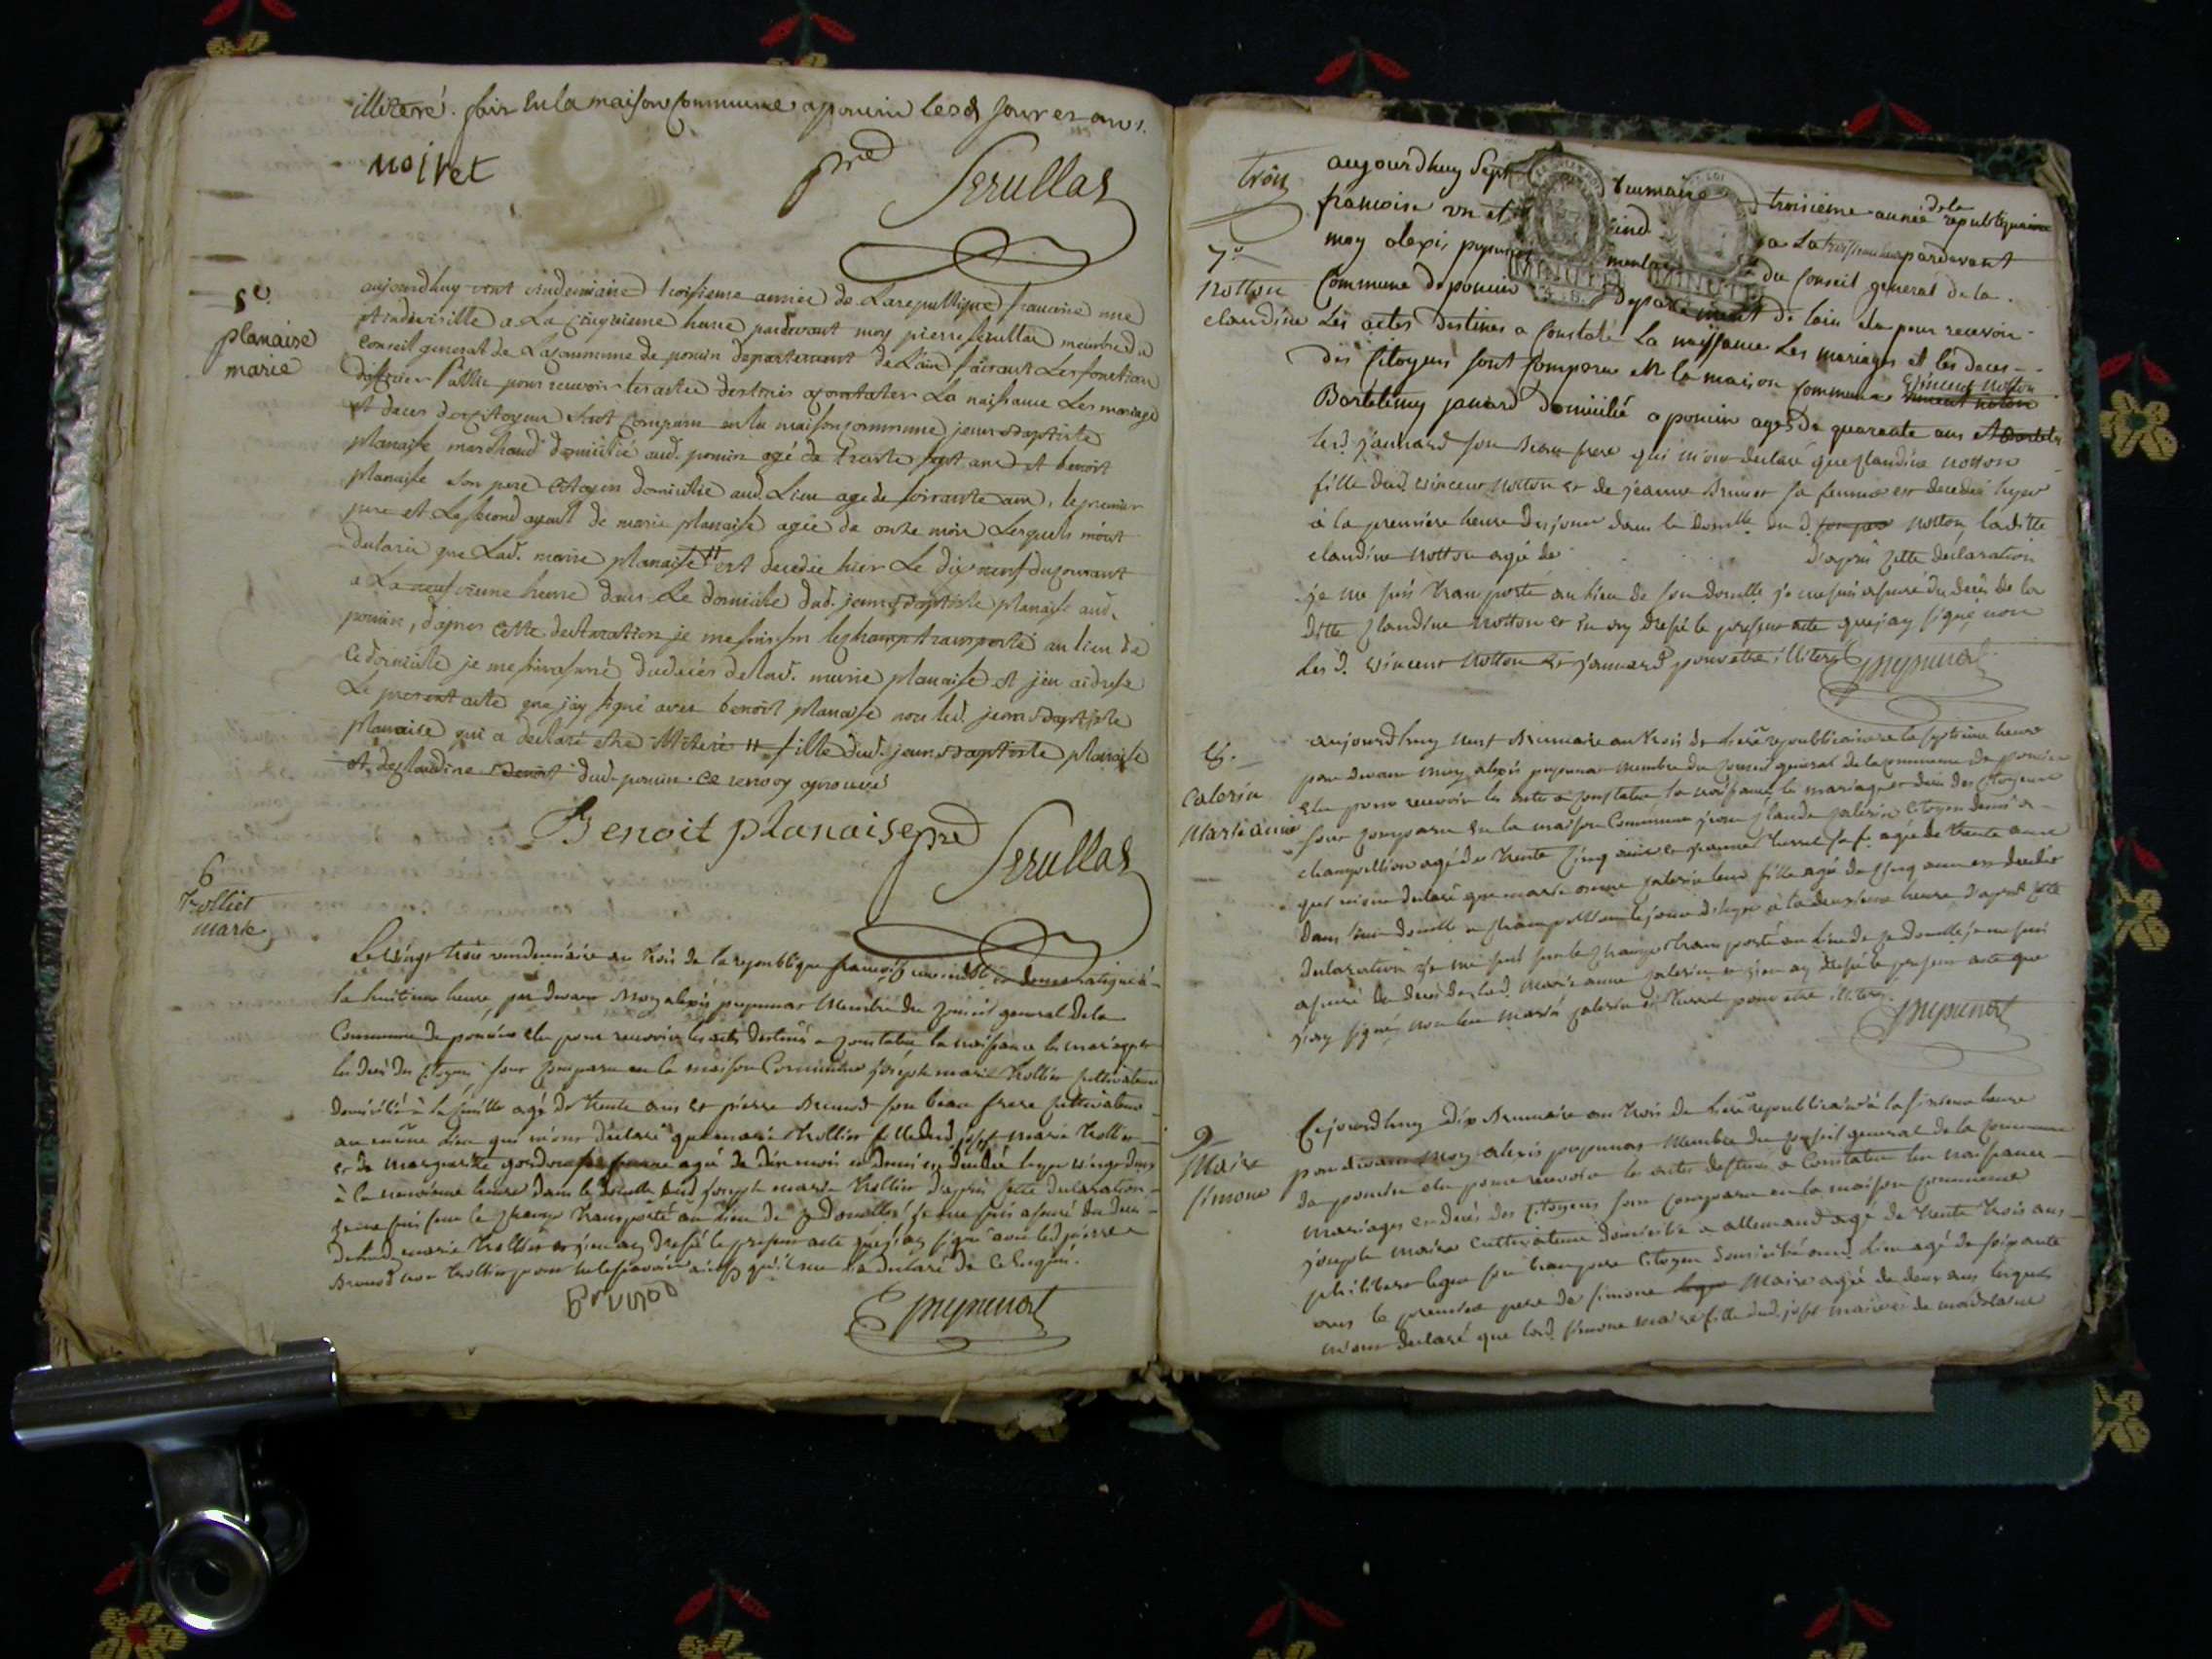 illiteré. fait en la maison Commune a poncin lesd. jour et an.
noiret
pre Serullas
5e
planaise
marie
aujourdhuy vint vindemiaire troisieme année de La republique francoise une
et indivisille a La cinquieme heure pardevant moy pierre serullas membre du
Conseil general de La commune de poncin departement de L'ain faisant Les fonctions
d'officier public pour recevoir les actes destinés a constater La naissance Les mariage
et deces des citoyens sont comparu en la maison commune jean baptiste
planaise marchand domicilié aud. poncin agé de trante sept ans et benoit
planaise son pere citoyen domicilié aud. Lieu age de soixante ans, le premier
pere et Le second ayeul de marie planaise agée de onze mois Lesquels m'ont
declaré que Lad. marie planaise # est decedée hier Le dix neuf du courant
a La neufvieme heure dans Le domicile dud. jean baptiste planaise aud.
poncin, d'apres cette declaration je me suis sur le champ transporté au lieu de
ce domicile je me suis assuré du decés de lad. marie planaise et j'en ai dressé
Le present acte que j'ay signé avec benoit planaise non led. jean baptiste
planaise qui a declaré etre illiteré # fille dud. jean baptiste planaise
et de claudine benoit dud. poncin. ce renvoy aprouvé
Benoit planaise pre Serullas
6
trolliet
marie
Le vingt trois vendemiaire an trois de la republique francoise une indivisible et democratique à
la huitieme heure, par devant Moy alexis peysunat Membre du Conseil general de la
Commune de poncin elu pour recevoir les actes destinés a constater la naissance les mariages et
les deces des Citoyens sont comparu en la maison Commune joseph marie trollier cultivateur
domicilié à la agé de trente ans et pierre brunod son beau frere cultivateur
au même Lieu qui m'ont declaré que marie trollier fille dud. joseph marie trollier
et de marguerite gordon sa femme agée de dix mois et demi est decedée hyer vingt deux
à la neuvieme heure dans le domicille dud. joseph marie trollier d'après cette declaration
je me suis sur le champ transporté au lieu de ce domicille je me suis assuré du deces
de lad. marie trollier et j'en ay dressé le present acte que j'ay signé avec led. pierre
brunod non trollier pour ne le savoir ainsy qu'il me l'a declaré de ce enquis.
Brunod
peysunat
trois
7e
notton
claudine
aujourdhuy sept brumaire troisieme année de la republique
francoise une et ind. a La troisieme heure pardevant
moy alexis peysunat membre du Conseil general de la
Commune de poncin departement de lain elu pour recevoir
Les actes destinés a Constaté La naissance Les mariages et les deces
des Citoyens sont comparu en la maison commune vincent notton
Bartelemy janard domicilié a poncin agés de quarante ans et
led. jannard son beau frere qui m'ont declaré que claudine notton
fille dud. vincent notton et de jeanne brunet sa femme est decedée hyer
à la premiere heure du jour dans le domille du d. notton, laditte
claudine notton agée de d'après cette declaration
je me suis transporté au lieu de son domille je me suis assuré du decés de la
ditte Claudine notton et en ay dressé le present acte que j'ay signé non
Les d. vincent notton et jannard pour etre illiteré peysunat
8.
Caterin
Marianne
aujourdhuy neuf brumaire an trois de l'ere republicaine a la septieme heure
par devant moy alexis peysunat Membre du Conseil general de la commune de poncin
elu pour recevoir les actes a constater la naissance, les mariages et deces des Citoyens
sont comparu en la maison Commune jean Claude Caterin Citoyen demt a
champollion agé de trente cinq ans et jeanne turrel sa fe. agée de trente ans
qui m'ont declaré que marie anne Caterin leur fille agée de cinq ans est decedée
dans leur domille a champollion le jour d'hyer à la deuxieme heure d'après cette
declaration je me suis sur le champ transporté au lieu de ce domille je me suis
assuré du deces de lad. marie anne Caterin et j'en ay dressé le present acte que
j'ay signé, non les mariés Caterin et turrel pour etre illiteré.
peysunat
9
Maire
simone
Cejourdhuy dix brumaire an trois de l'ere republicaine à la sixieme heure
par devant moy alexis peysunat Membre du Conseil general de la commune
de poncin elu pour recevoir les actes destinés a Constater les naissances
mariages et decés des Citoyens sont comparu en la maison commune
joseph maire cultivateur domicilié a allemand agé de trente trois ans
philibert son beau pere Citoyen domicilié aud. Lieu agé de soixante
ans le premier pere de simone Maire agée de deux ans lesquels
m'ont declaré que lad. simone maire fille dud. josph maire et de madelaine